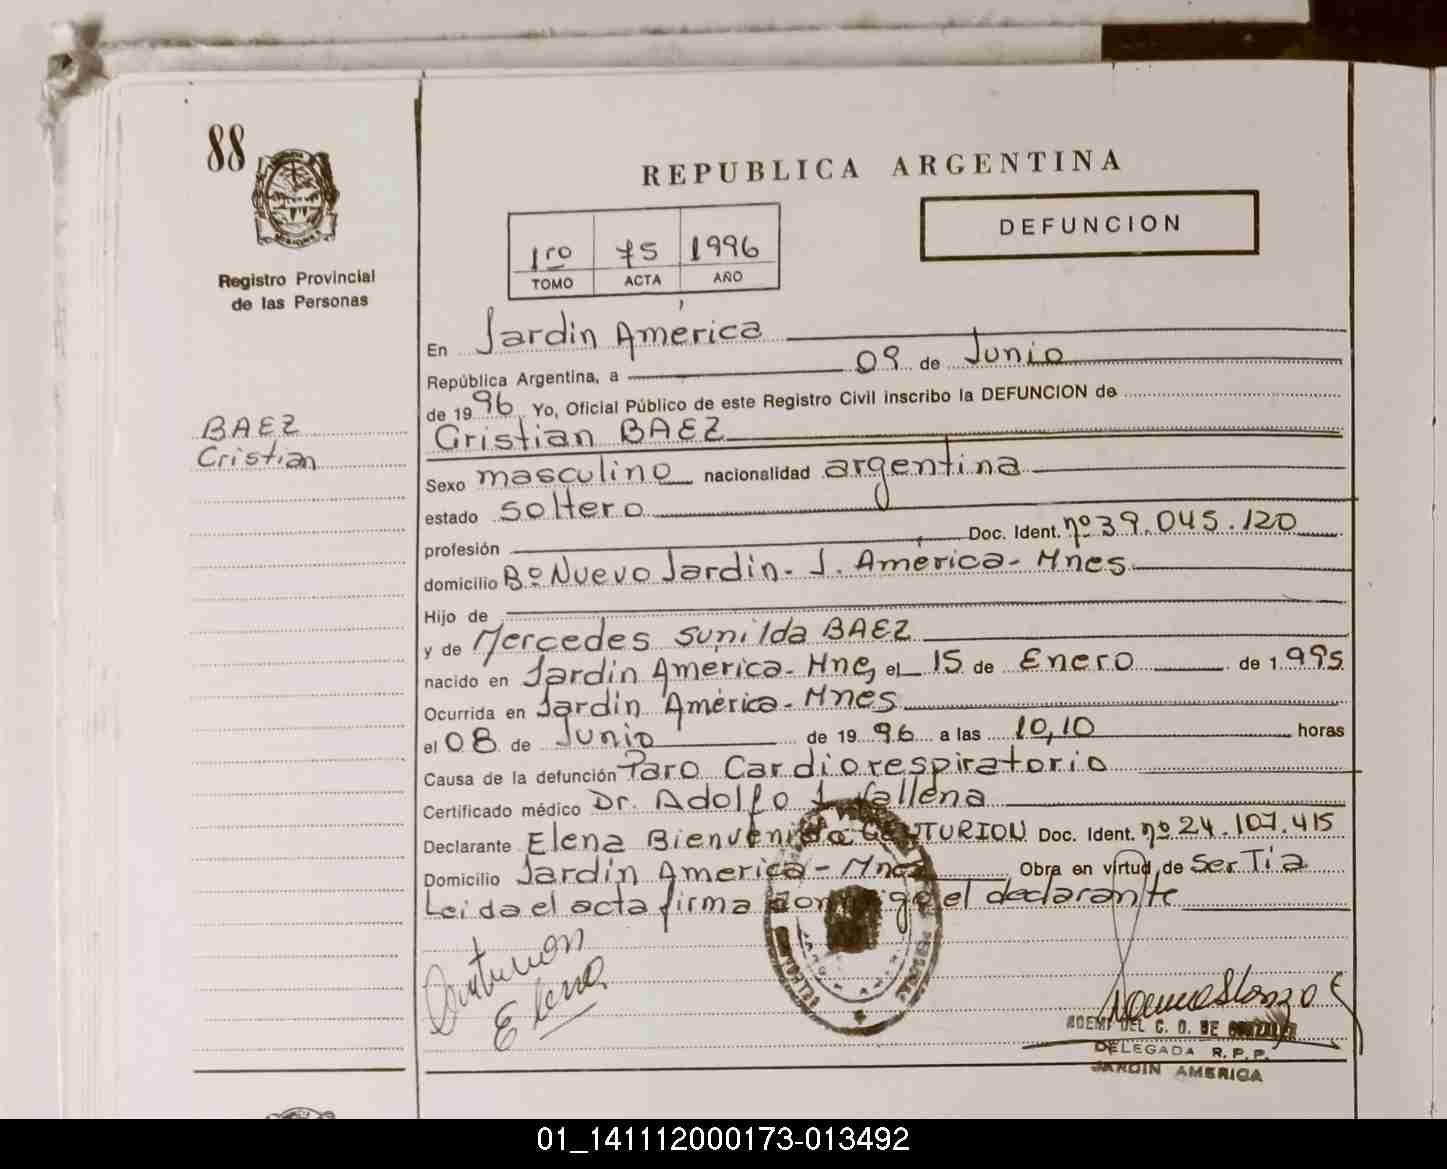 88
REPUBLICA ARGENTINA
DEFUNCION
1ro 75 1996
TOMO ACTA AÑO
Registro Provincial
de las Personas
BAEZ
Cristian
En Jardín América
República Argentina, a 09 de Junio
de 1996 Yo, Oficial Público de este Registro Civil inscribo la DEFUNCION de
Cristian BAEZ
Sexo masculino nacionalidad argentina
estado soltero
profesión Doc. Ident. nº 39.045.120
domicilio Bº Nuevo Jardín - J. América - Mnes
Hijo de
y de Mercedes Sunilda BAEZ
nacido en Jardín América - Mnes, el 15 de Enero de 1.995
Ocurrida en Jardín América - Mnes
el 08 de Junio de 1996 a las 10,10 horas
Causa de la defunción Paro Cardiorespiratorio
Certificado médico Dr. Adolfo Vallena
Declarante Elena Bienvenida CENTURION Doc. Ident. nº 24.107.415
Domicilio Jardín America - Mnes Obra en virtud de ser Tia
Leida el acta firma conmigo el declarante
Centurion
Elena
NOEMI DEL C. O. DE GONZALEZ
DELEGADA R.P.P.
JARDIN AMERICA
01_141112000173-013492